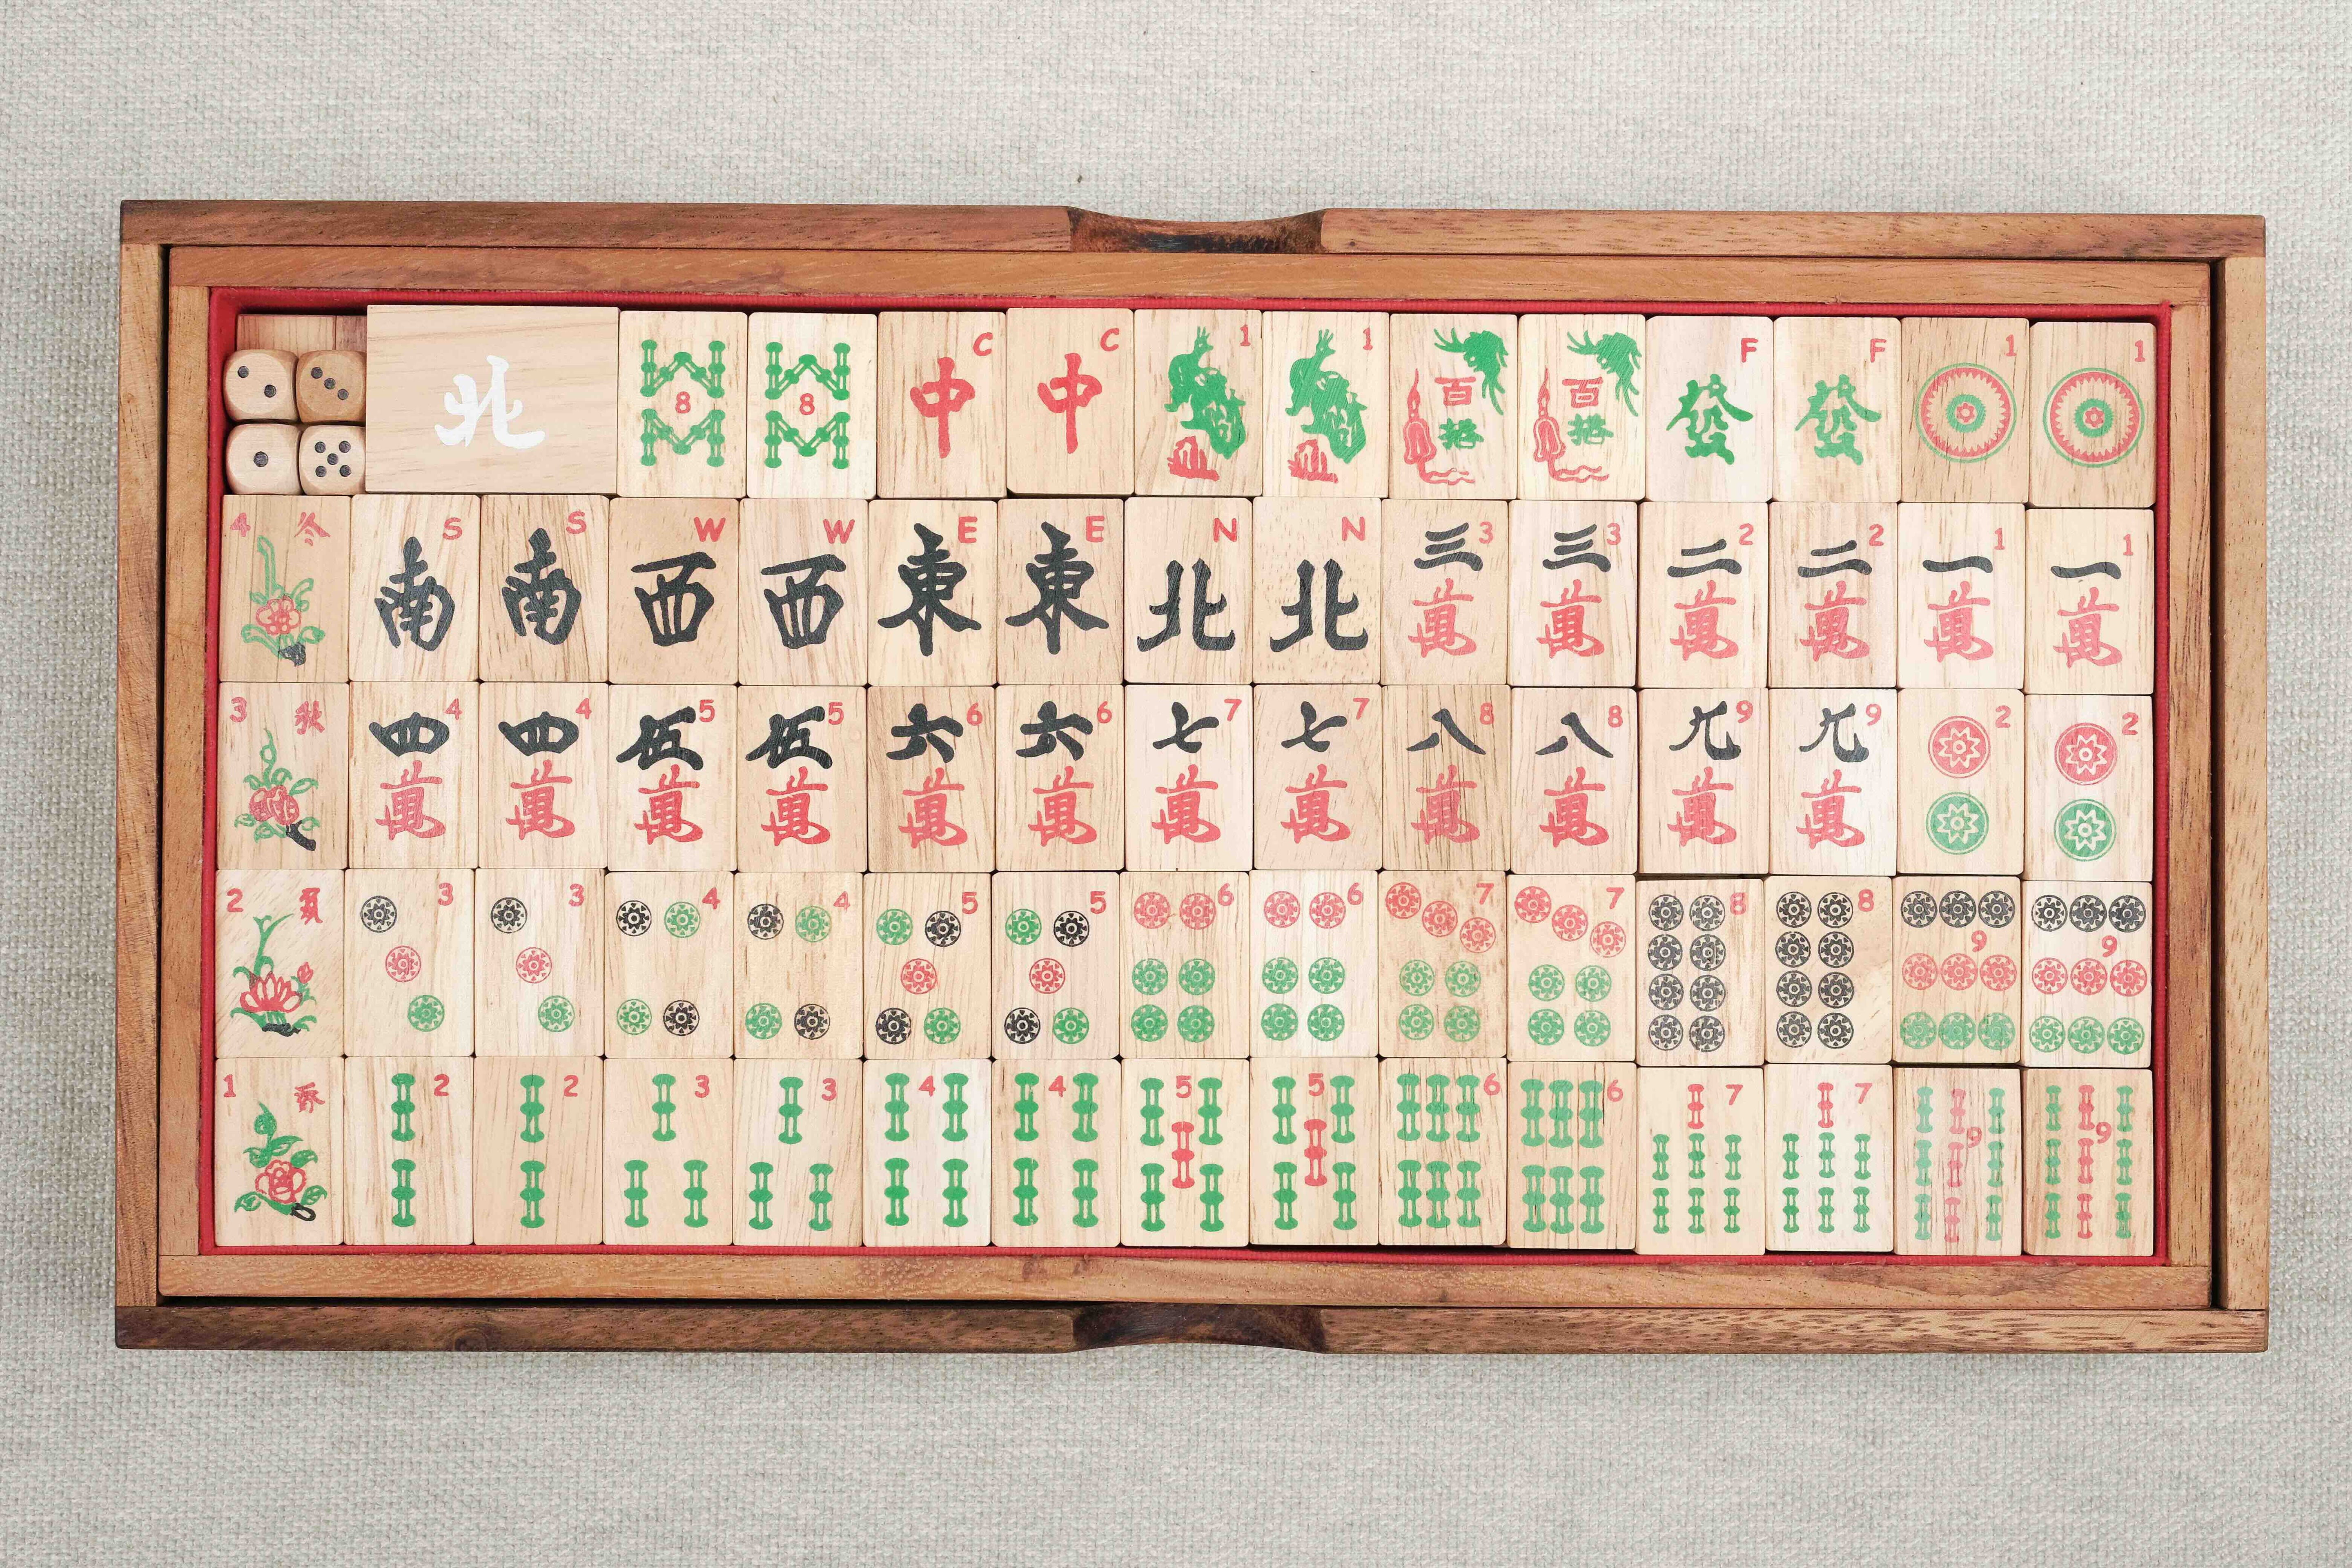 北 8 8 C 中 C 中 1 1 百搭 百搭 F 發 F 發 1 1
4 冬 S 南 S 南 W 西 W 西 E 東 E 東 N 北 N 北 3 三萬 3 三萬 2 二萬 2 二萬 1 一萬 1 一萬
3 秋 4 四萬 4 四萬 5 伍萬 5 伍萬 6 六萬 6 六萬 7 七萬 7 七萬 8 八萬 8 八萬 9 九萬 9 九萬 2 2
2 夏 3 3 4 4 5 5 6 6 7 7 8 8 9 9
1 春 2 2 3 3 4 4 5 5 6 6 7 7 9 9